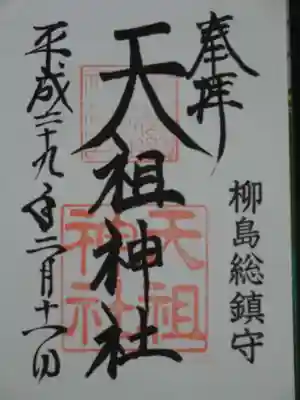 奉拝
柳島総鎮守
天祖神社
天祖
神社
平成二十九年二月十一日